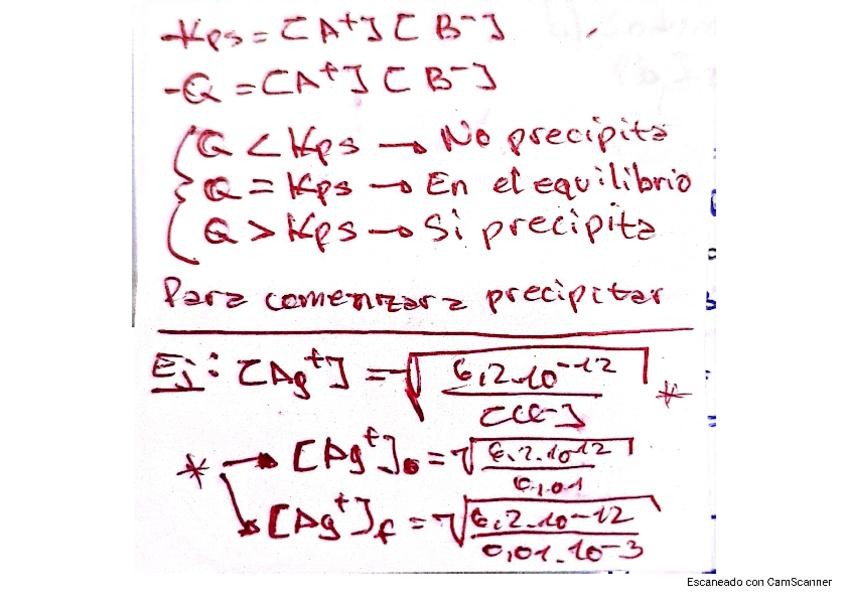 -Kps = [A⁺] [B⁻]
-Q = [A⁺] [B⁻]
Q < Kps → No precipita
Q = Kps → En el equilibrio
Q > Kps → Si precipita
Para comenzar a precipitar
Ej: [Ag⁺] = √(6,2·10⁻¹² / [Cl⁻]) *
* → [Ag⁺]₀ = √(6,2·10⁻¹² / 0,01)
↘ [Ag⁺]f = √(6,2·10⁻¹² / 0,01·10⁻³)
Escaneado con CamScanner